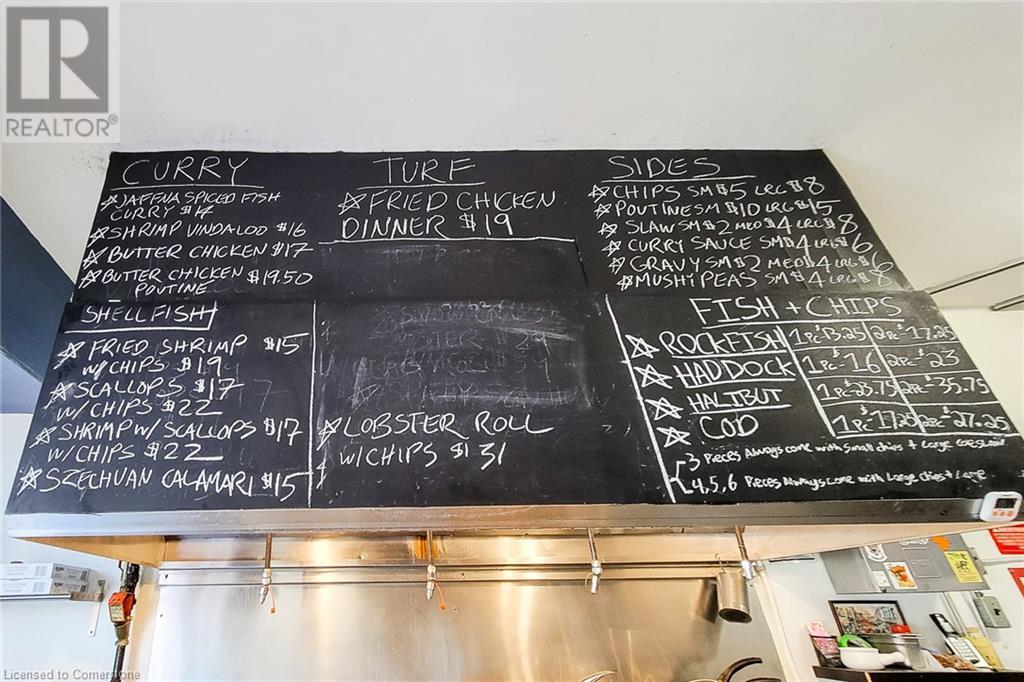 REALTOR®
CURRY
JAFFNA SPICED FISH
CURRY $14
SHRIMP VINDALOO $16
BUTTER CHICKEN $17
BUTTER CHICKEN $19.50
POUTINE
TURF
FRIED CHICKEN
DINNER $19
SIDES
CHIPS SM $5 LRG $8
POUTINE SM $10 LRG $15
SLAW SM $2 MED $4 LRG $8
CURRY SAUCE SM $4 LRG $6
GRAVY SM $2 MED $4 LRG $6
MUSHY PEAS SM $4 LRG $8
SHELLFISH
FRIED SHRIMP $15
W/CHIPS $19
SCALLOPS $17
W/CHIPS $22
SHRIMP W/ SCALLOPS $17
W/CHIPS $22
SZECHUAN CALAMARI $15
LOBSTER ROLL
W/CHIPS $31
FISH + CHIPS
ROCKFISH 1 PC $13.25 2PC $17.25
HADDOCK 1 PC $16 2PC $23
HALIBUT 1 PC $23.75 2PC $35.75
COD 1 PC $17.25 2PC $27.25
3 Pieces Always come with small chips + Large
4,5,6 Pieces Always come with Large chips + Large
Licensed to Cornerstone